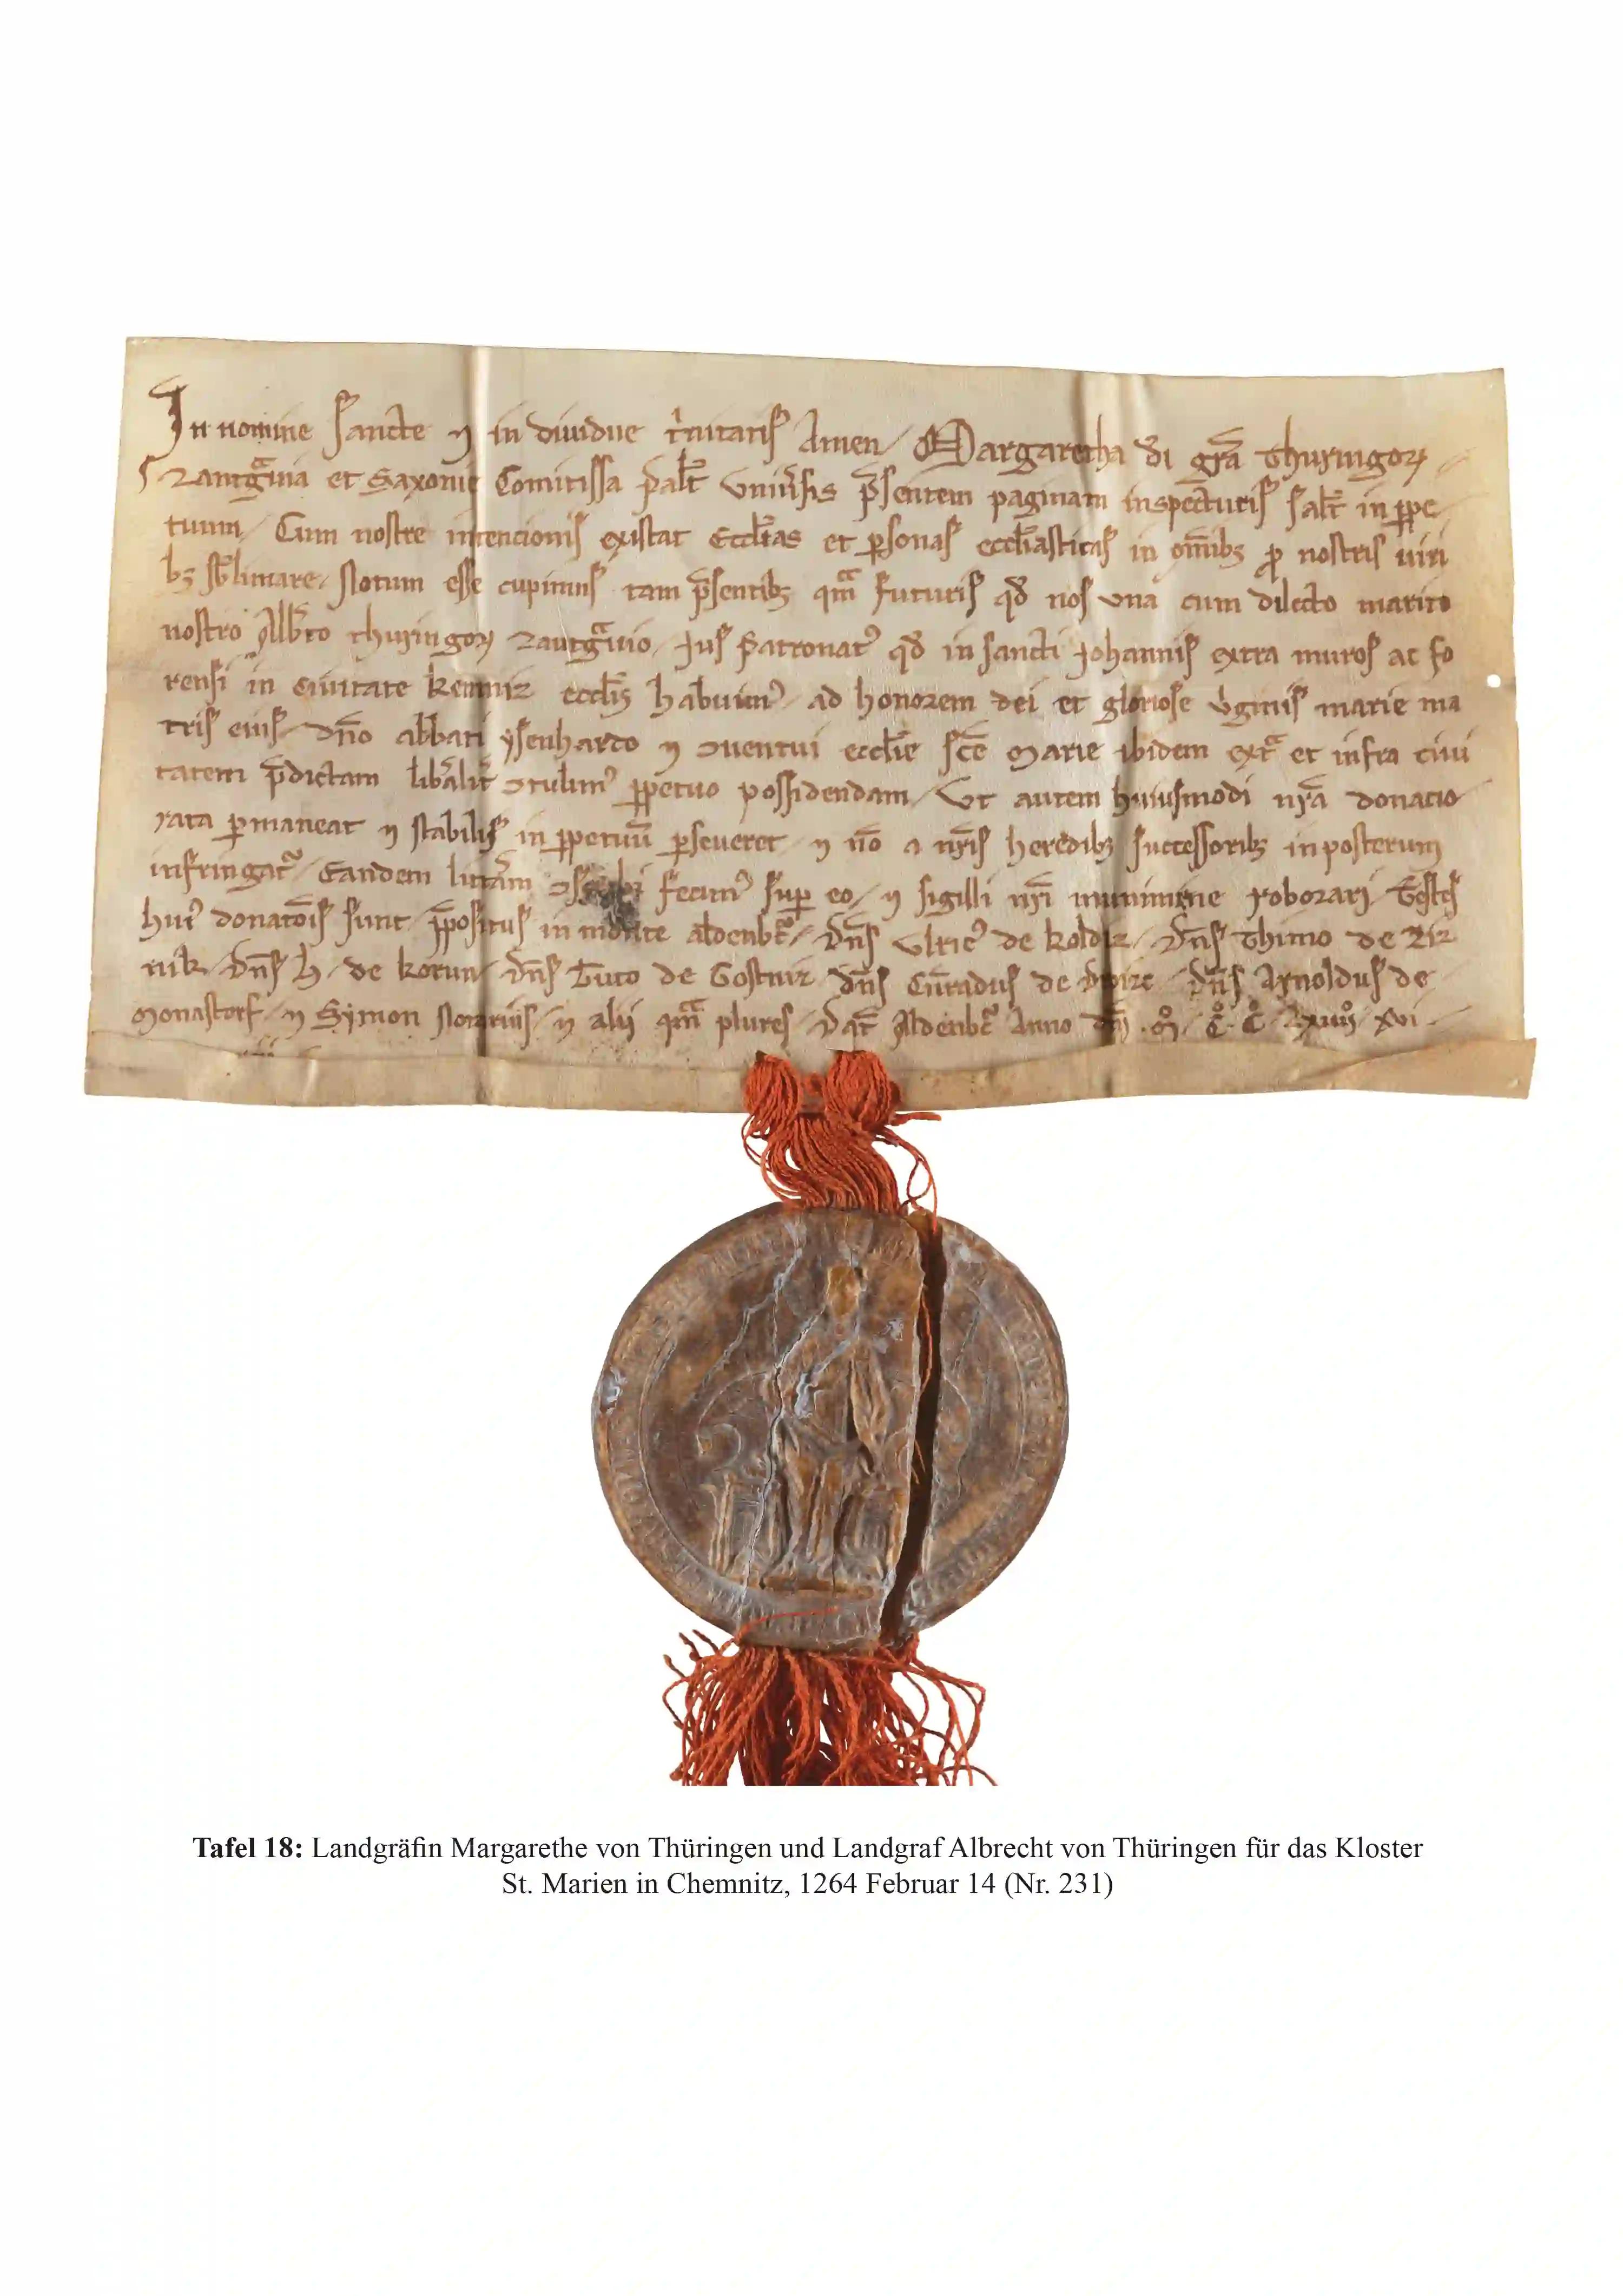 In nomine sancte ⁊ in diuidue t̍nitatis Amen / Margaretha d̄i gr̄a Thuringoꝝ
Lantg͛uia et Saxonie Comitissa Palat̄ Uniu̍sis p̄sentem paginam inspecturis salt̄ in ꝑpe
tuum / Cum nostre intencionis existat Eccl̄ias et ꝑsonas eccl̄iasticas in om̄ibꝫ ꝓ nostris uiri
bꝫ sb̄limare / Notum esse cupimus tam p̄sentibꝫ qm̄ futuris qd̄ nos una cum dilecto marito
nostro Alb̄to thuringoꝝ Lantg͛uio / Jus Patronatꝰ qd̄ in sancti Johannis extra muros ac fo
rensi in ciuitate kemniz eccl̄is habuimꝰ / ad honorem dei et gloriose v̍ginis marie ma
tris eius / dn̄o abbati ysenhardo ⁊ ꝯuentui eccl̄ie sc̄e Marie ibidem ext͛ et infra ciui
tatem p̄dictam lib̍alit̍ ꝯtulimꝰ ꝑpetuo possidendam / Ut autem huiusmodi nr̄a donatio
rata ꝑmaneat ⁊ stabilis in ꝑpetuū ꝑseueret ⁊ nō a nr̄is heredibꝫ successoribꝫ inposterum
infringat᷑ / Eandem litt̍am fecimꝰ suꝑ eo / ⁊ sigilli nr̄i munimine roborari / Testes
huiꝰ donatōis sunt / p̄positus in monte aldenb͛c / dn̄s Ulricꝰ de koldiz / dn̄s Thimo de Liz
nik / dn̄s h / de korun / dn̄s Tuto de Gostniz dn̄s Cūradus de dn̄s Arnoldus de
Monastorf / ⁊ Symon Notarius / ⁊ alii qm̄ plures / Dat̄ Aldenb͛c Anno dn̄i . M̊ . C̊ . C̊ . Lxiiii̊ / xvi .
Tafel 18: Landgräfin Margarethe von Thüringen und Landgraf Albrecht von Thüringen für das Kloster
St. Marien in Chemnitz, 1264 Februar 14 (Nr. 231)